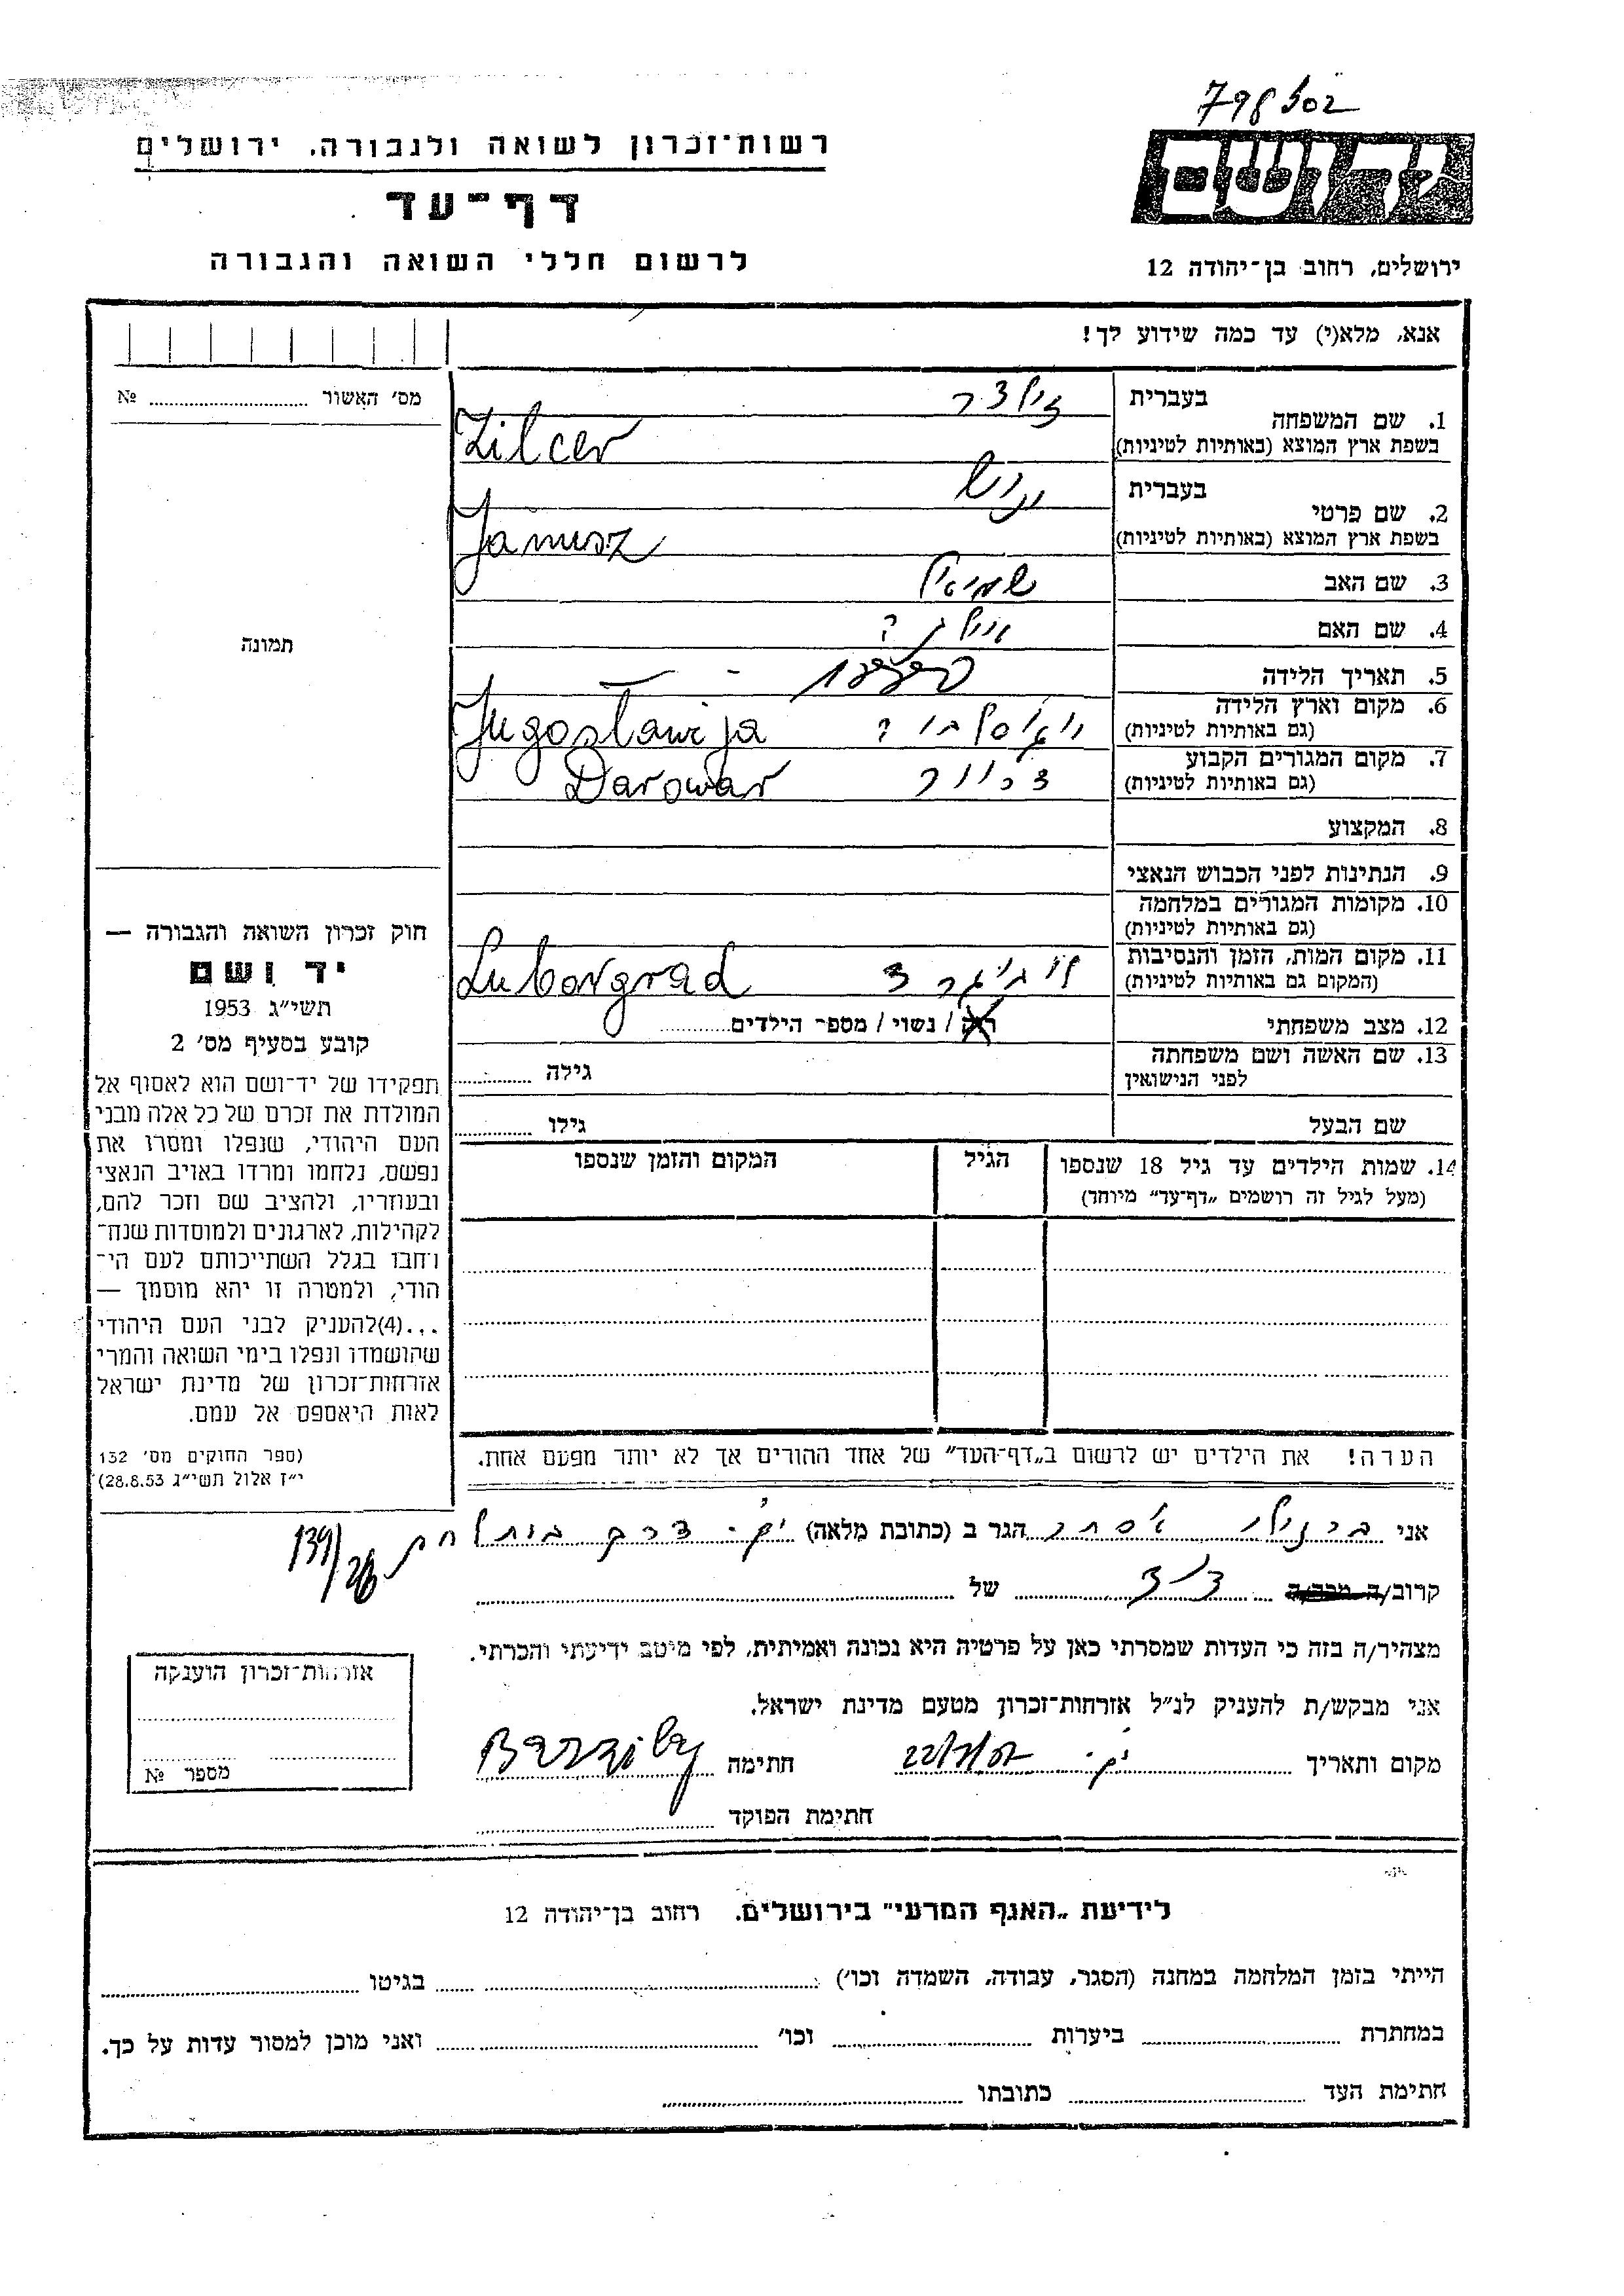 798302
רשות־זכרון לשואה ולגבורה, ירושלים
דף־עד
לרשום חללי השואה והגבורה
יד ושם
ירושלים, רחוב בן־יהודה 12
אנא, מלא(י) עד כמה שידוע לך!
מס׳ האשור № 
תמונה
1. שם המשפחה
בעברית זילצר
בשפת ארץ המוצא (באותיות לטיניות) Zilcer
2. שם פרטי
בעברית ינוש
בשפת ארץ המוצא (באותיות לטיניות) Janusz
3. שם האב שמואל
4. שם האם
5. תאריך הלידה
6. מקום וארץ הלידה יוגוסלביה Jugosławija
(גם באותיות לטיניות)
7. מקום המגורים הקבוע Darowar
(גם באותיות לטיניות)
8. המקצוע
9. הנתינות לפני הכבוש הנאצי
10. מקומות המגורים במלחמה
(גם באותיות לטיניות)
11. מקום המות, הזמן והנסיבות Luborgrad
(המקום גם באותיות לטיניות)
12. מצב משפחתי רוק / נשוי / מספר הילדים
13. שם האשה ושם משפחתה
לפני הנישואין גילה
שם הבעל גילו
14. שמות הילדים עד גיל 18 שנספו הגיל המקום והזמן שנספו
(מעל לגיל זה רושמים „דף־עד״ מיוחד)
הערה! את הילדים יש לרשום ב„דף־העד״ של אחד ההורים אך לא יותר מפעם אחת.
חוק זכרון השואה והגבורה —
יד ושם
תשי״ג 1953
קובע בסעיף מס׳ 2
תפקידו של יד־ושם הוא לאסוף אל
המולדת את זכרם של כל אלה מבני
העם היהודי, שנפלו ומסרו את
נפשם, נלחמו ומרדו באויב הנאצי
ובעוזריו, ולהציב שם וזכר להם,
לקהילות, לארגונים ולמוסדות שנח־
רחבו בגלל השתייכותם לעם הי־
הודי, ולמטרה זו יהא מוסמך —
...(4)להעניק לבני העם היהודי
שהושמדו ונפלו בימי השואה והמרי
אזרחות־זכרון של מדינת ישראל
לאות היאספם אל עמם.
(ספר החוקים מס׳ 132
י״ז אלול תשי״ג 28.8.53)
אני ברזילי אסתר הגר ב (כתובת מלאה) ים. דרך בית לחם 139/26
קרוב/ה מכר/ה דוד של
מצהיר/ה בזה כי העדות שמסרתי כאן על פרטיה היא נכונה ואמיתית, לפי מיטב ידיעתי והכרתי.
אני מבקש/ת להעניק לנ״ל אזרחות־זכרון מטעם מדינת ישראל.
מקום ותאריך ים. חתימה Barzilay
חתימת הפוקד
אזרחות־זכרון הוענקה
מספר №
לידיעת „האגף המדעי״ בירושלים. רחוב בן־יהודה 12
הייתי בזמן המלחמה במחנה (הסגר, עבודה, השמדה וכו׳) בגיטו
במחתרת ביערות וכו׳ ואני מוכן למסור עדות על כך.
חתימת העד כתובתו